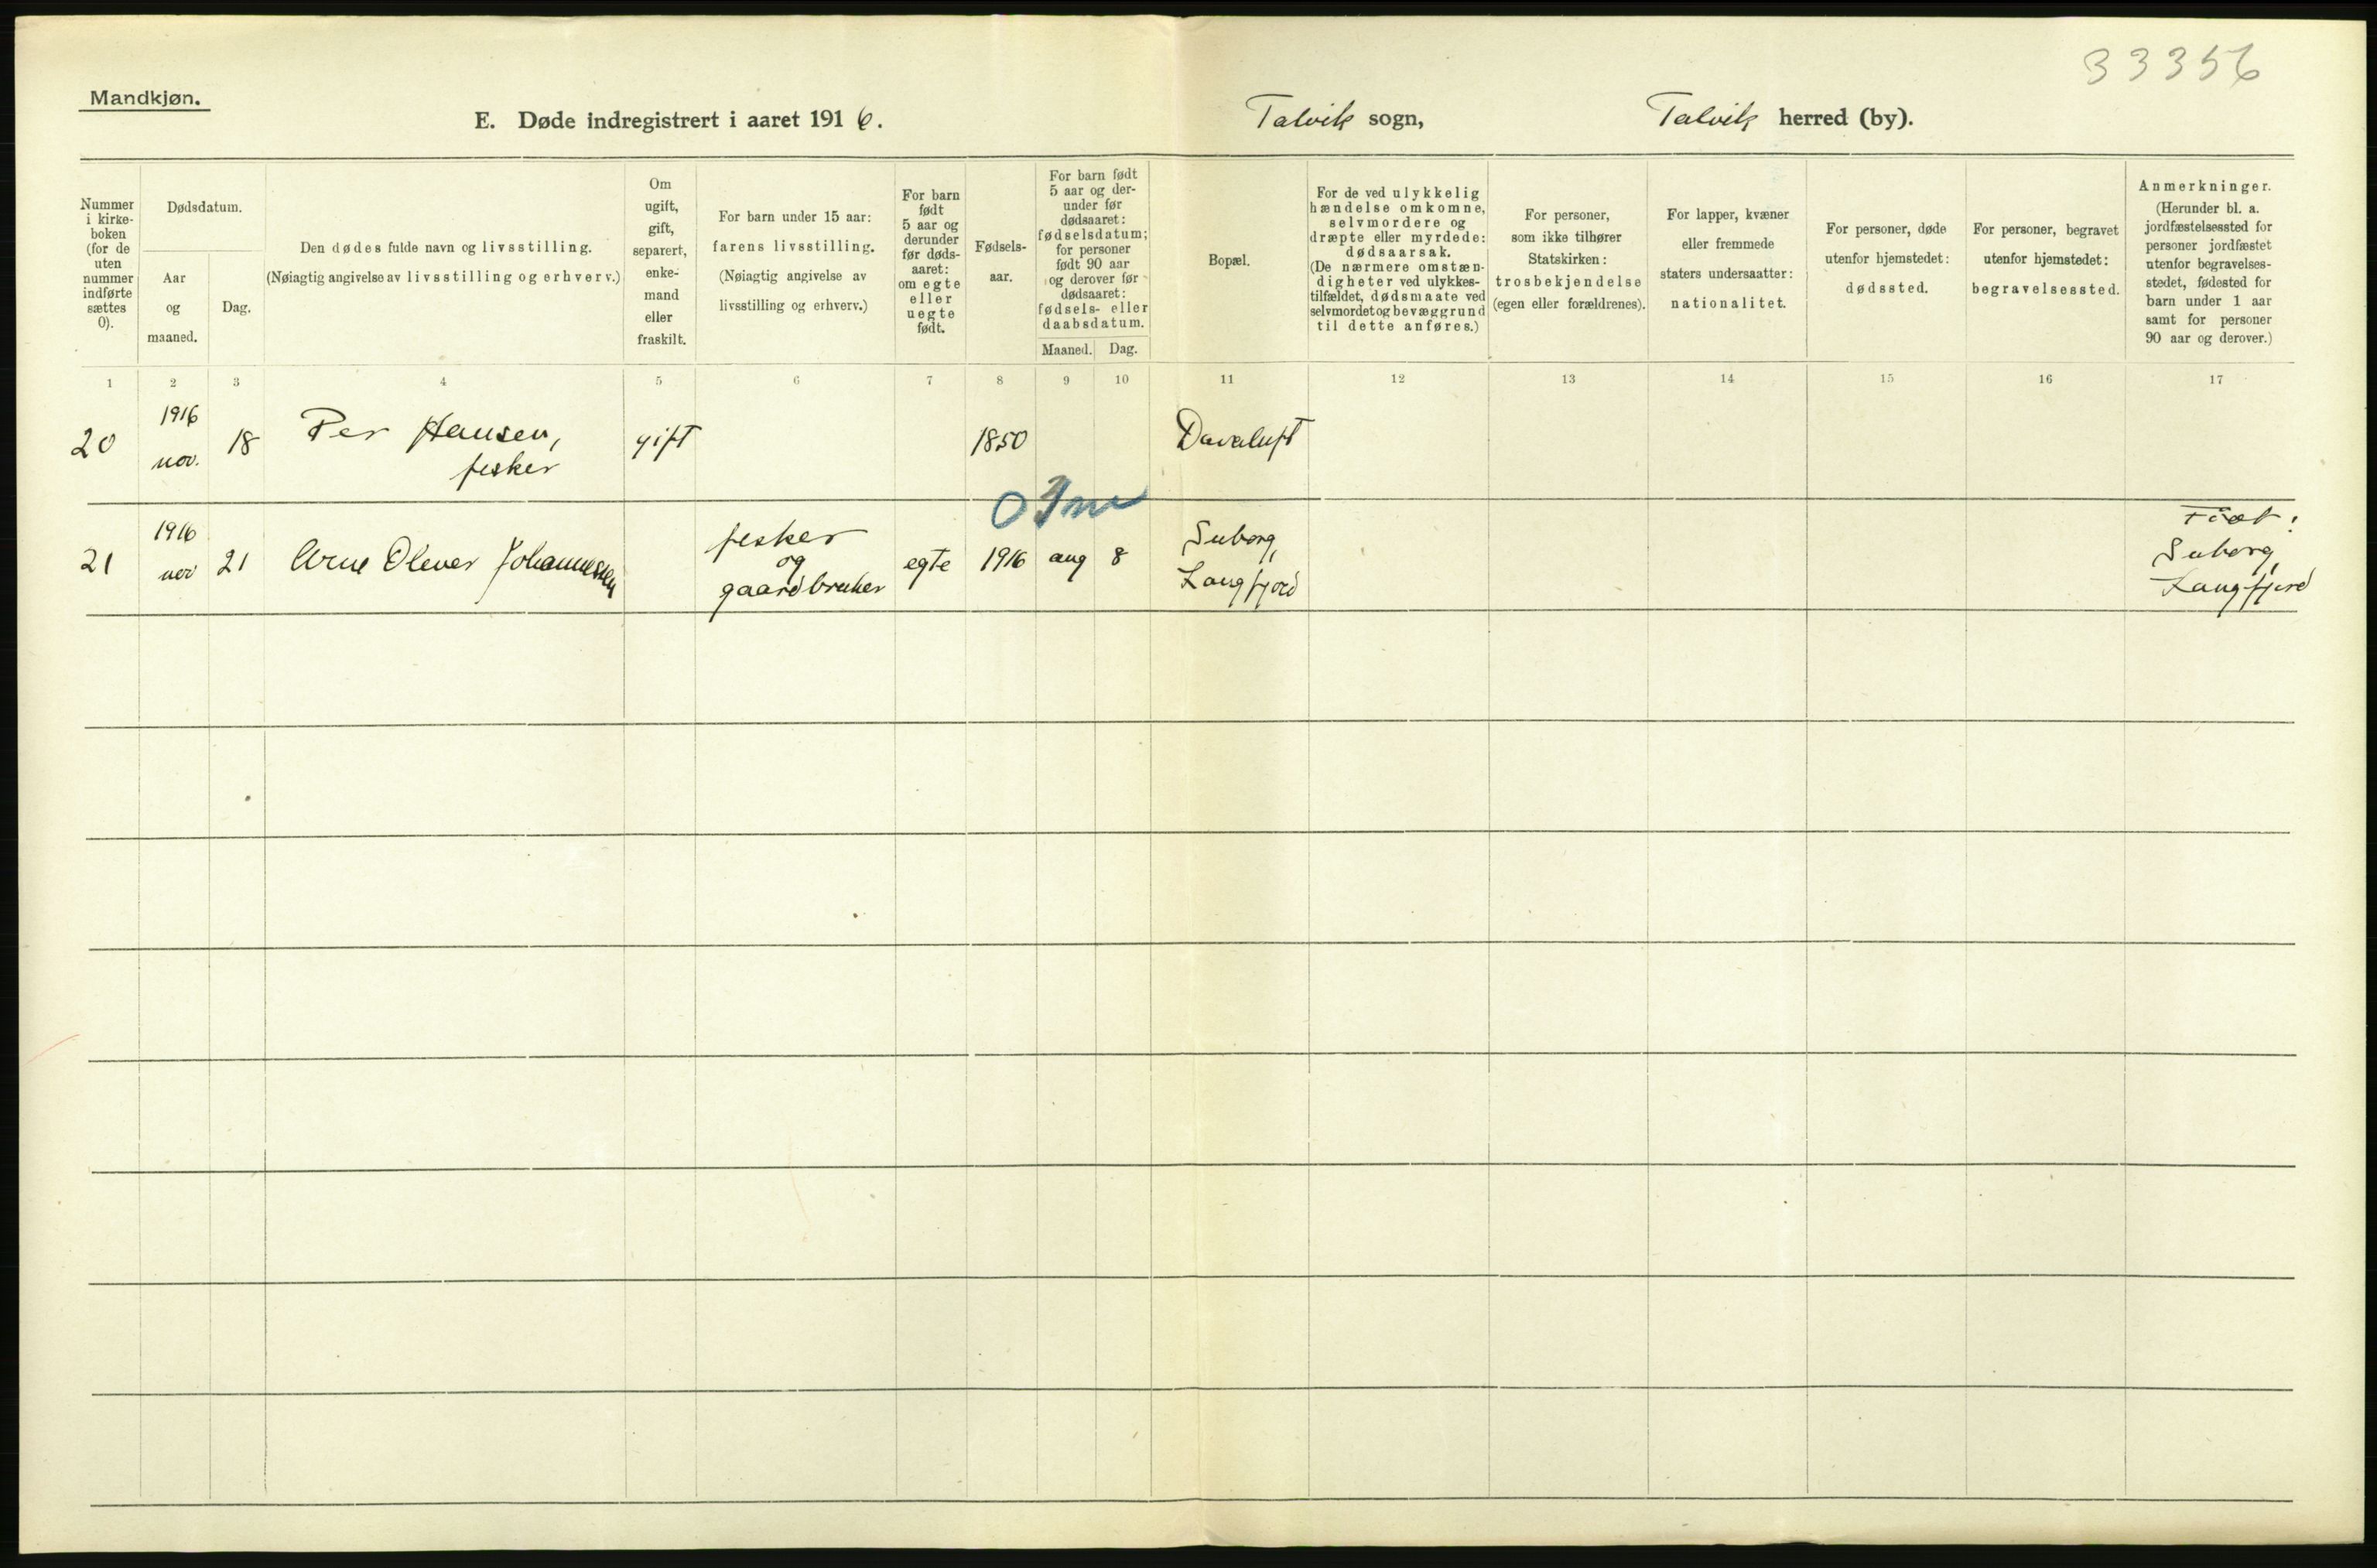 33356
Mandkjøn.
E. Døde indregistrert i aaret 1916.
Talvik sogn,
Talvik herred (by).
Nummer
i kirke-
boken
(for de
uten
nummer
indførte
sættes
0).
Dødsdatum.
Aar
og
maaned.
Dag.
Den dødes fulde navn og livsstilling.
(Nøiagtig angivelse av livsstilling og erhverv.)
Om
ugift,
gift,
separert,
enke-
mand
eller
fraskilt.
For barn under 15 aar:
farens livsstilling.
(Nøiagtig angivelse av
livsstilling og erhverv.)
For barn
født
5 aar og
derunder
før døds-
aaret:
om egte
eller
uegte
født.
Fødsels-
aar.
For barn født
5 aar og der-
under før
dødsaaret:
fødselsdatum;
for personer
født 90 aar
og derover før
dødsaaret:
fødsels- eller
daabsdatum.
Maaned.
Dag.
Bopæl.
For de ved ulykkelig
hændelse omkomne,
selvmordere og
dræpte eller myrdede:
dødsaarsak.
(De nærmere omstæn-
digheter ved ulykkes-
tilfældet, dødsmaate ved
selvmordet og bevæggrund
til dette anføres.)
For personer,
som ikke tilhører
Statskirken:
trosbekjendelse
(egen eller forældrenes).
For lapper, kvæner
eller fremmede
staters undersaatter:
nationalitet.
For personer, døde
utenfor hjemstedet:
dødssted.
For personer, begravet
utenfor hjemstedet:
begravelsessted.
Anmerkninger.
(Herunder bl. a.
jordfæstelsessted for
personer jordfæstet
utenfor begravelses-
stedet, fødested for
barn under 1 aar
samt for personer
90 aar og derover.)
1 2 3 4 5 6 7 8 9 10 11 12 13 14 15 16 17
20
1916
nov.
18
Per Hansen,
fisker
gift
1850
0 3 m
21
1916
nov
21
Arne Oliver Johannessen
fisker
og
gaardbruker
egte
1916
aug
8
Langfjord
Født:
Langfjord